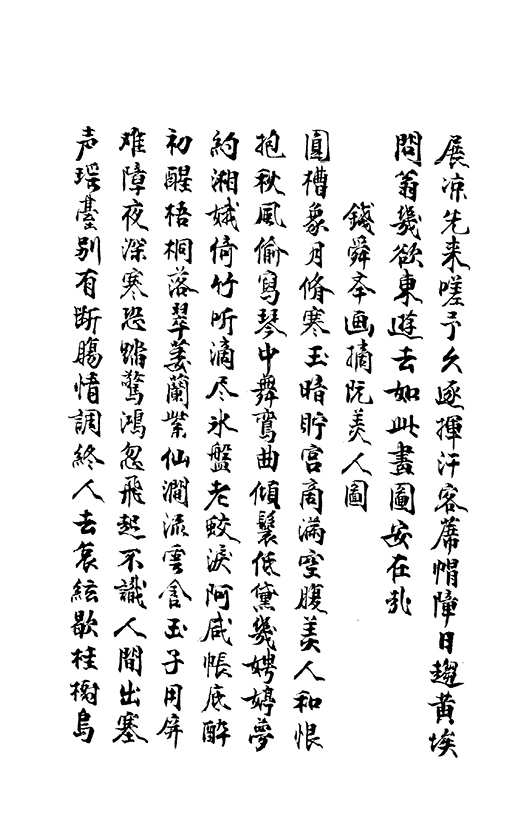 展凉先来嗟予久逐挥汗客蓆帽障日趨黄埃
問翁幾欲東遊去如此畫圖安在哉
錢舜奉画摘阮美人圖
圓槽象月脩寒玉暗貯宫商滿空腹美人和恨
抱秋風偷寫琴中舞鸞曲傾鬟低黛幾娉婷夢
約湘娥倚竹听滴尽氷盤老蛟淚阿咸帳底酔
初醒梧桐落翠萎蘭紫仙澗流雲舍玉子用屏
难障夜深寒恐踏驚鴻忽飛起不識人間出塞
声瑶臺别有断腸情調終人去哀絃歇桂樹烏